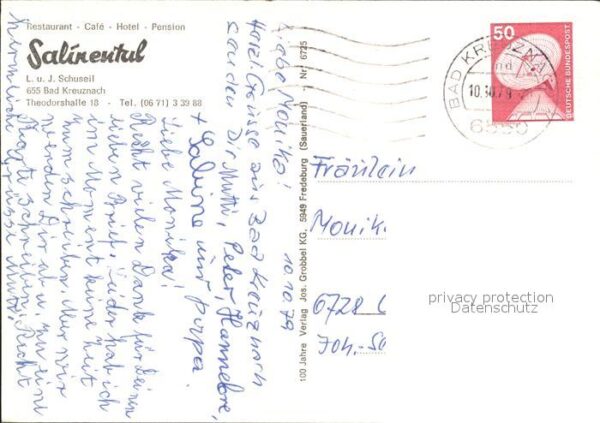 Restaurant - Café - Hotel - Pension
Salinental
L. u. J. Schuseil
655 Bad Kreuznach
Theodorshalle 18 - Tel. (06 71) 3 39 88
100 Jahre Verlag Jos. Grobbel KG, 5949 Fredeburg (Sauerland) - Nr. 6725
10.10.79
Liebe Monika!
Herzl. Grüsse aus Bad Kreuznach
senden Dir Mutti, Peter, Hannelore,
+ Sabine und papa.
Liebe Monika!
Recht vielen Dank für Deinen
lieben Brief, leider hab ich
im Moment keine Zeit
zum schreiben. Aber wir
wenden Dir ab u. zu eine
Karte schreiben. Recht
herzliche Grüsse Mutti
50
DEUTSCHE BUNDESPOST
BAD KREUZNACH
10.10.79
6550
Fräulein
Monik.
6728
Joh.-Se
privacy protection
Datenschutz